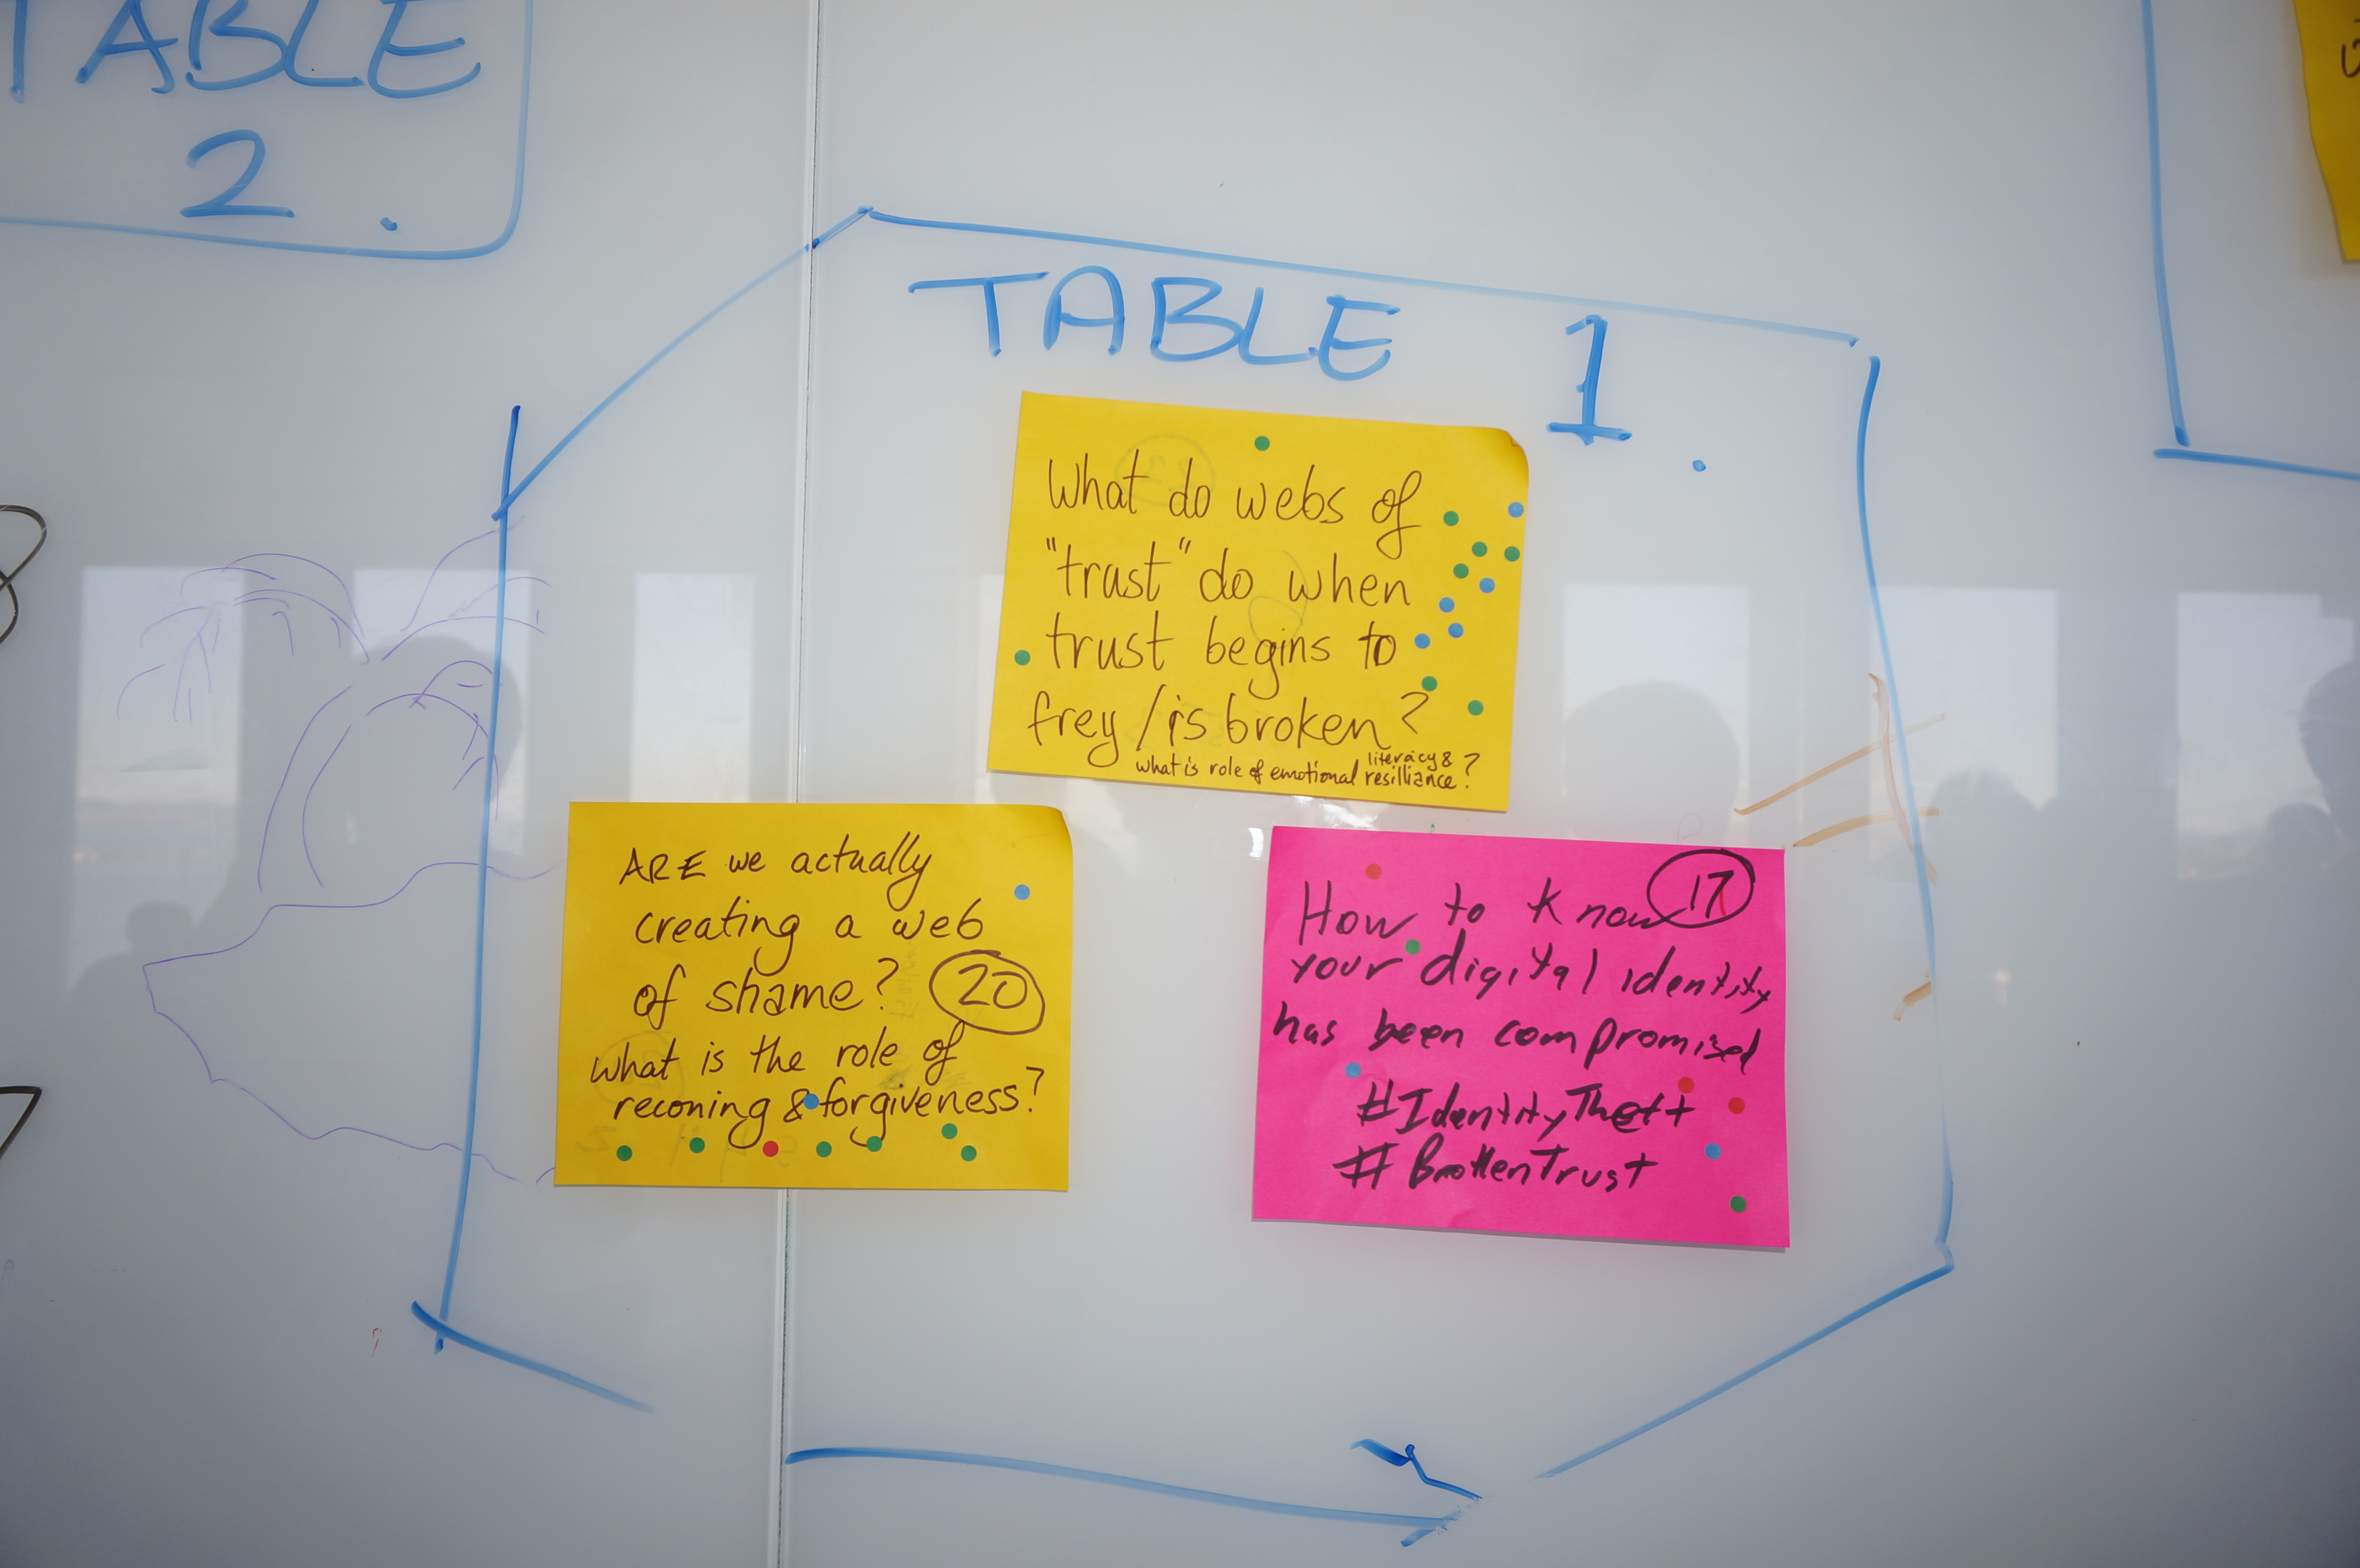 TABLE
2.
TABLE 1.
What do webs of
"trust" do when
trust begins to
frey / is broken?
what is role of emotional literacy & resilliance?
ARE we actually
creating a web
of shame?
20
What is the role of
reconing & forgiveness?
17
How to know
your digital identity
has been compromised
#IdentityTheft
#BrokenTrust